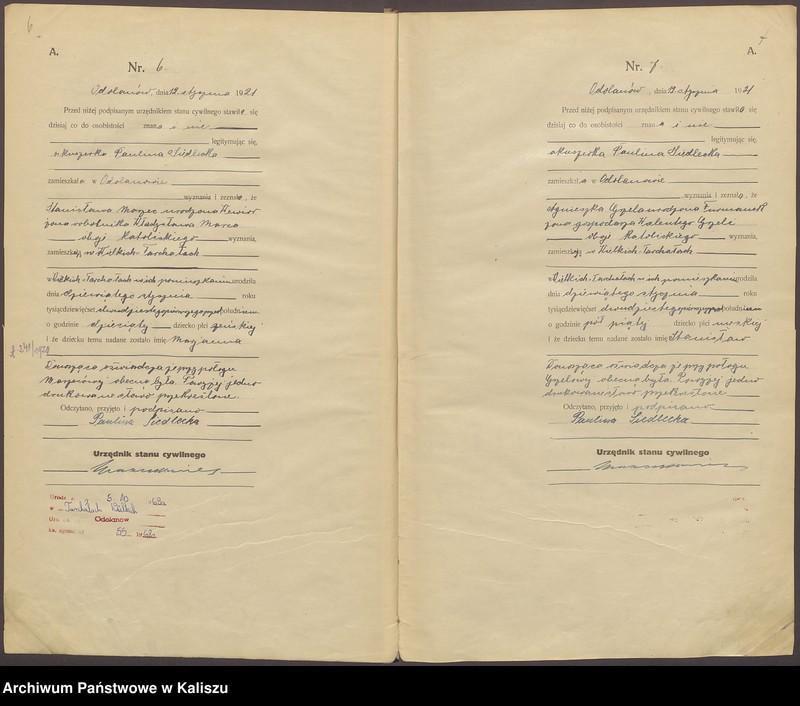 6
A.
Nr. 6.
Odolanów, dnia 12 stycznia 1921
Przed niżej podpisanym urzędnikiem stanu cywilnego stawiła się
dzisiaj co do osobistości znana i nie
legitymując się,
akuszerka Paulina Siedlecka
zamieszkała w Odolanowie
wyznania i zeznała, że
Stanisława Marzec urodzona
żona robotnika Władysława Marca
oboje katolickiego wyznania,
zamieszkują w Wielkich-Tarchałach
w Wielkich-Tarchałach w ich pomieszkaniu urodziła
dnia dziewiątego stycznia roku
tysiącdziewięćset dwudziestego pierwszego popołudniu
o godzinie dziesiątej dziecko płci żeńskiej
i że dziecku temu nadane zostało imię Maryanna
Donosząca oświadcza, że przy połogu
Marcowej obecna była. Powyżej jedno
drukowane słowo przekreślone.
Odczytano, przyjęto i podpisano
Paulina Siedlecka
Urzędnik stanu cywilnego
5.10
w Tarchały Wielkie
Odolanów
55
7
A.
Nr. 7.
Odolanów, dnia 12 stycznia 1921
Przed niżej podpisanym urzędnikiem stanu cywilnego stawiła się
dzisiaj co do osobistości znana i nie
legitymując się,
akuszerka Paulina Siedlecka
zamieszkała w Odolanowie
wyznania i zeznała, że
Agnieszka urodzona Furmanek
żona gospodarza Walentego
oboje katolickiego wyznania,
zamieszkują w Wielkich-Tarchałach
w Wielkich-Tarchałach w ich pomieszkaniu urodziła
dnia dziewiątego stycznia roku
tysiącdziewięćset dwudziestego pierwszego
o godzinie pół piątej dziecko płci męskiej
i że dziecku temu nadane zostało imię Stanisław
Donosząca oświadcza, że przy połogu
obecna była. Powyżej jedno
drukowane słowo przekreślone
Odczytano, przyjęto i podpisano
Paulina Siedlecka
Urzędnik stanu cywilnego
Archiwum Państwowe w Kaliszu